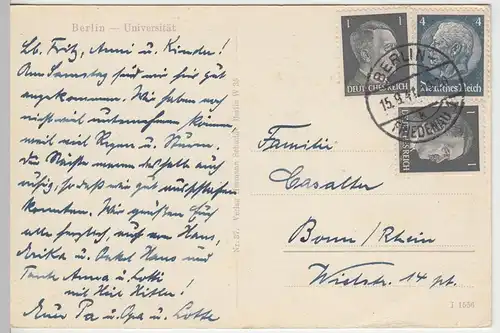 Berlin — Universität
Lb. Fritz, Anni u. Kinder!
Am Samstag sind wir hier gut
angekommen. Wir haben noch
nicht viel unternehmen können
weil viel Regen u. Sturm.
Die Nächte waren deshalb auch
ruhig, so daß wir gut ausschlafen
konnten. Wir grüßen Euch
alle herzlich, auch von Hans,
Erika u. Onkel Hans und
Tante Anna u. Lotti
mit Heil Hitler!
Euer Pa u. Opa u. Lotte
Berlin W 35
Nr. 37.
1
DEUTSCHES REICH
4
Deutsches Reich
1
BERLIN
15.9.41
FRIEDENAU
Familie
Casalter
Bonn/Rhein
Wielstr. 14 pt.
I 1556